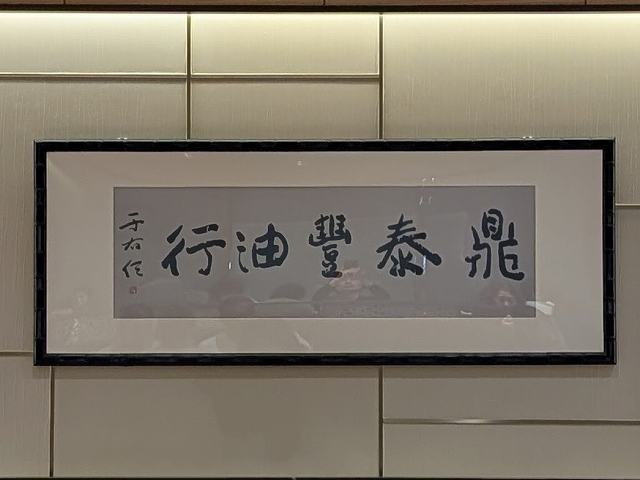 鼎泰豐油行
于右任